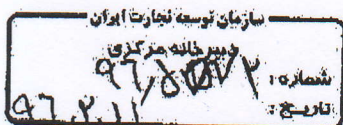 سازمان توسعه تجارت ایران
دبیرخانه مرکزی
شماره :
تاریخ : ۹۶.۲.۱۱